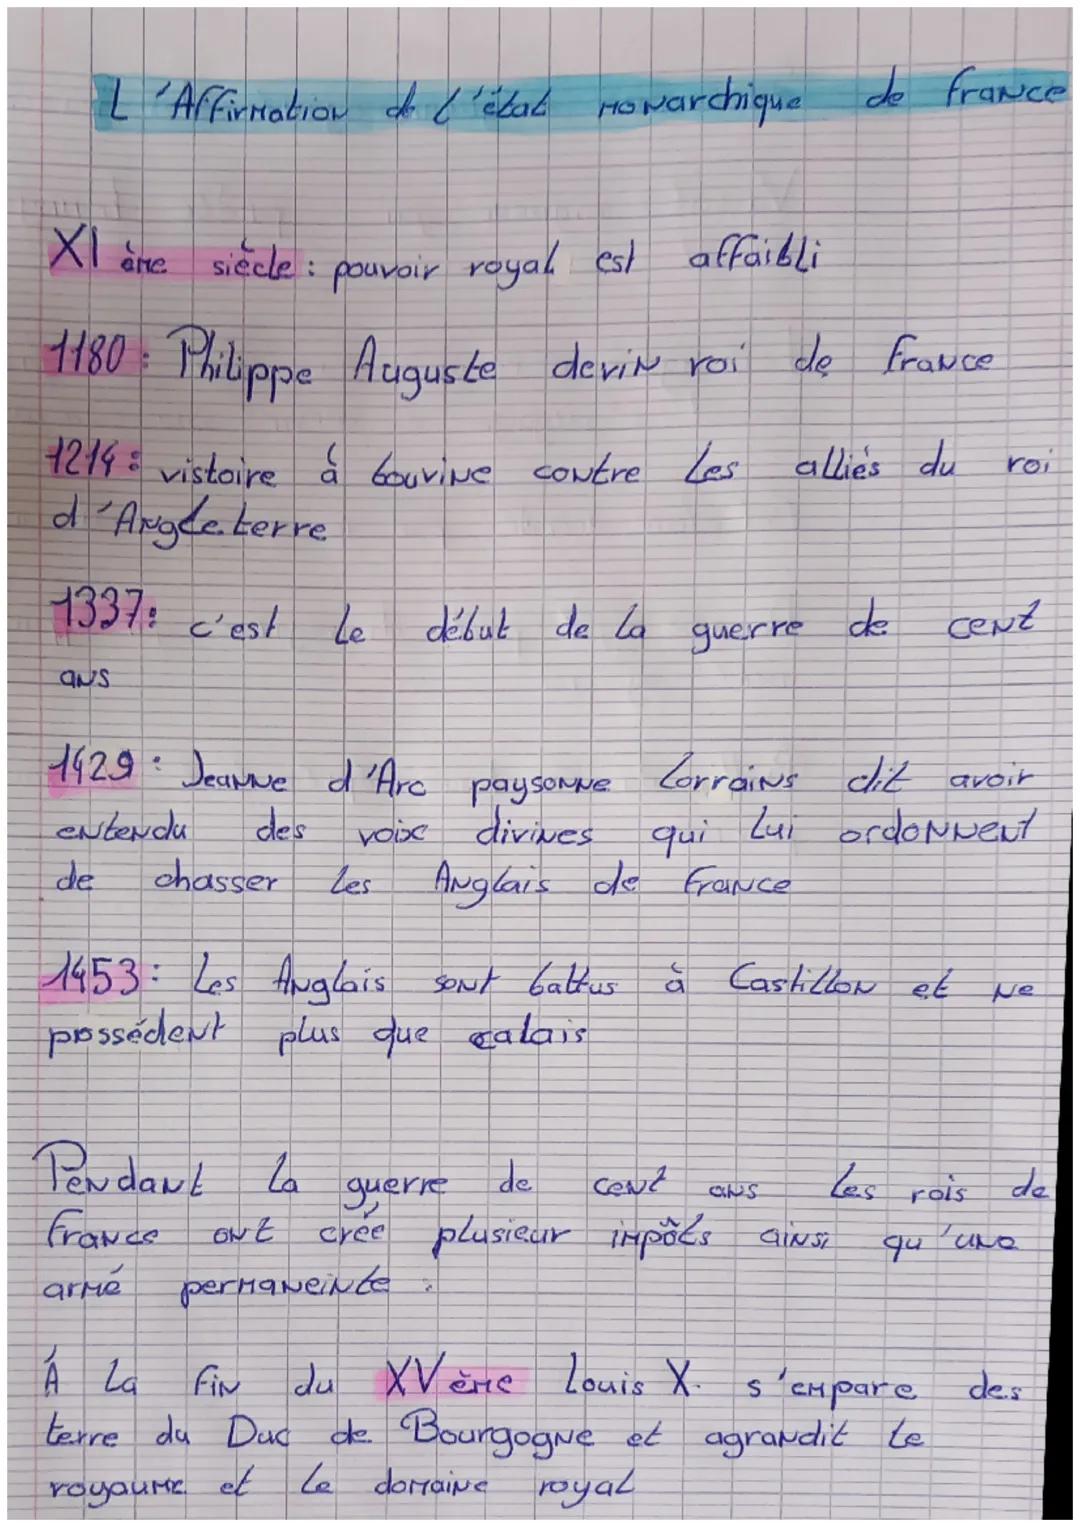 L'Affirmation de l'état monarchique de france
XI ème siècle : pouvoir royal est affaibli
1180 : Philippe Auguste devin roi de france
1214 : vistoire à bouvine contre les alliés du roi
d'Angleterre
1337 : c'est le début de la guerre de cent
ans
1429 : Jeanne d'Arc paysonne lorrains dit avoir
entendu des voix divines qui lui ordonnent
de chasser les Anglais de france
1453 : Les Anglais sont battus à Castillon et ne
possédent plus que calais
Pendant la guerre de cent ans les rois de
france ont crée plusieur impôts ainsi qu'une
armé permaneinte.
À la fin du XVème Louis X. s'empare des
terre du Duc de Bourgogne et agrandit le
royaume et le domaine royal